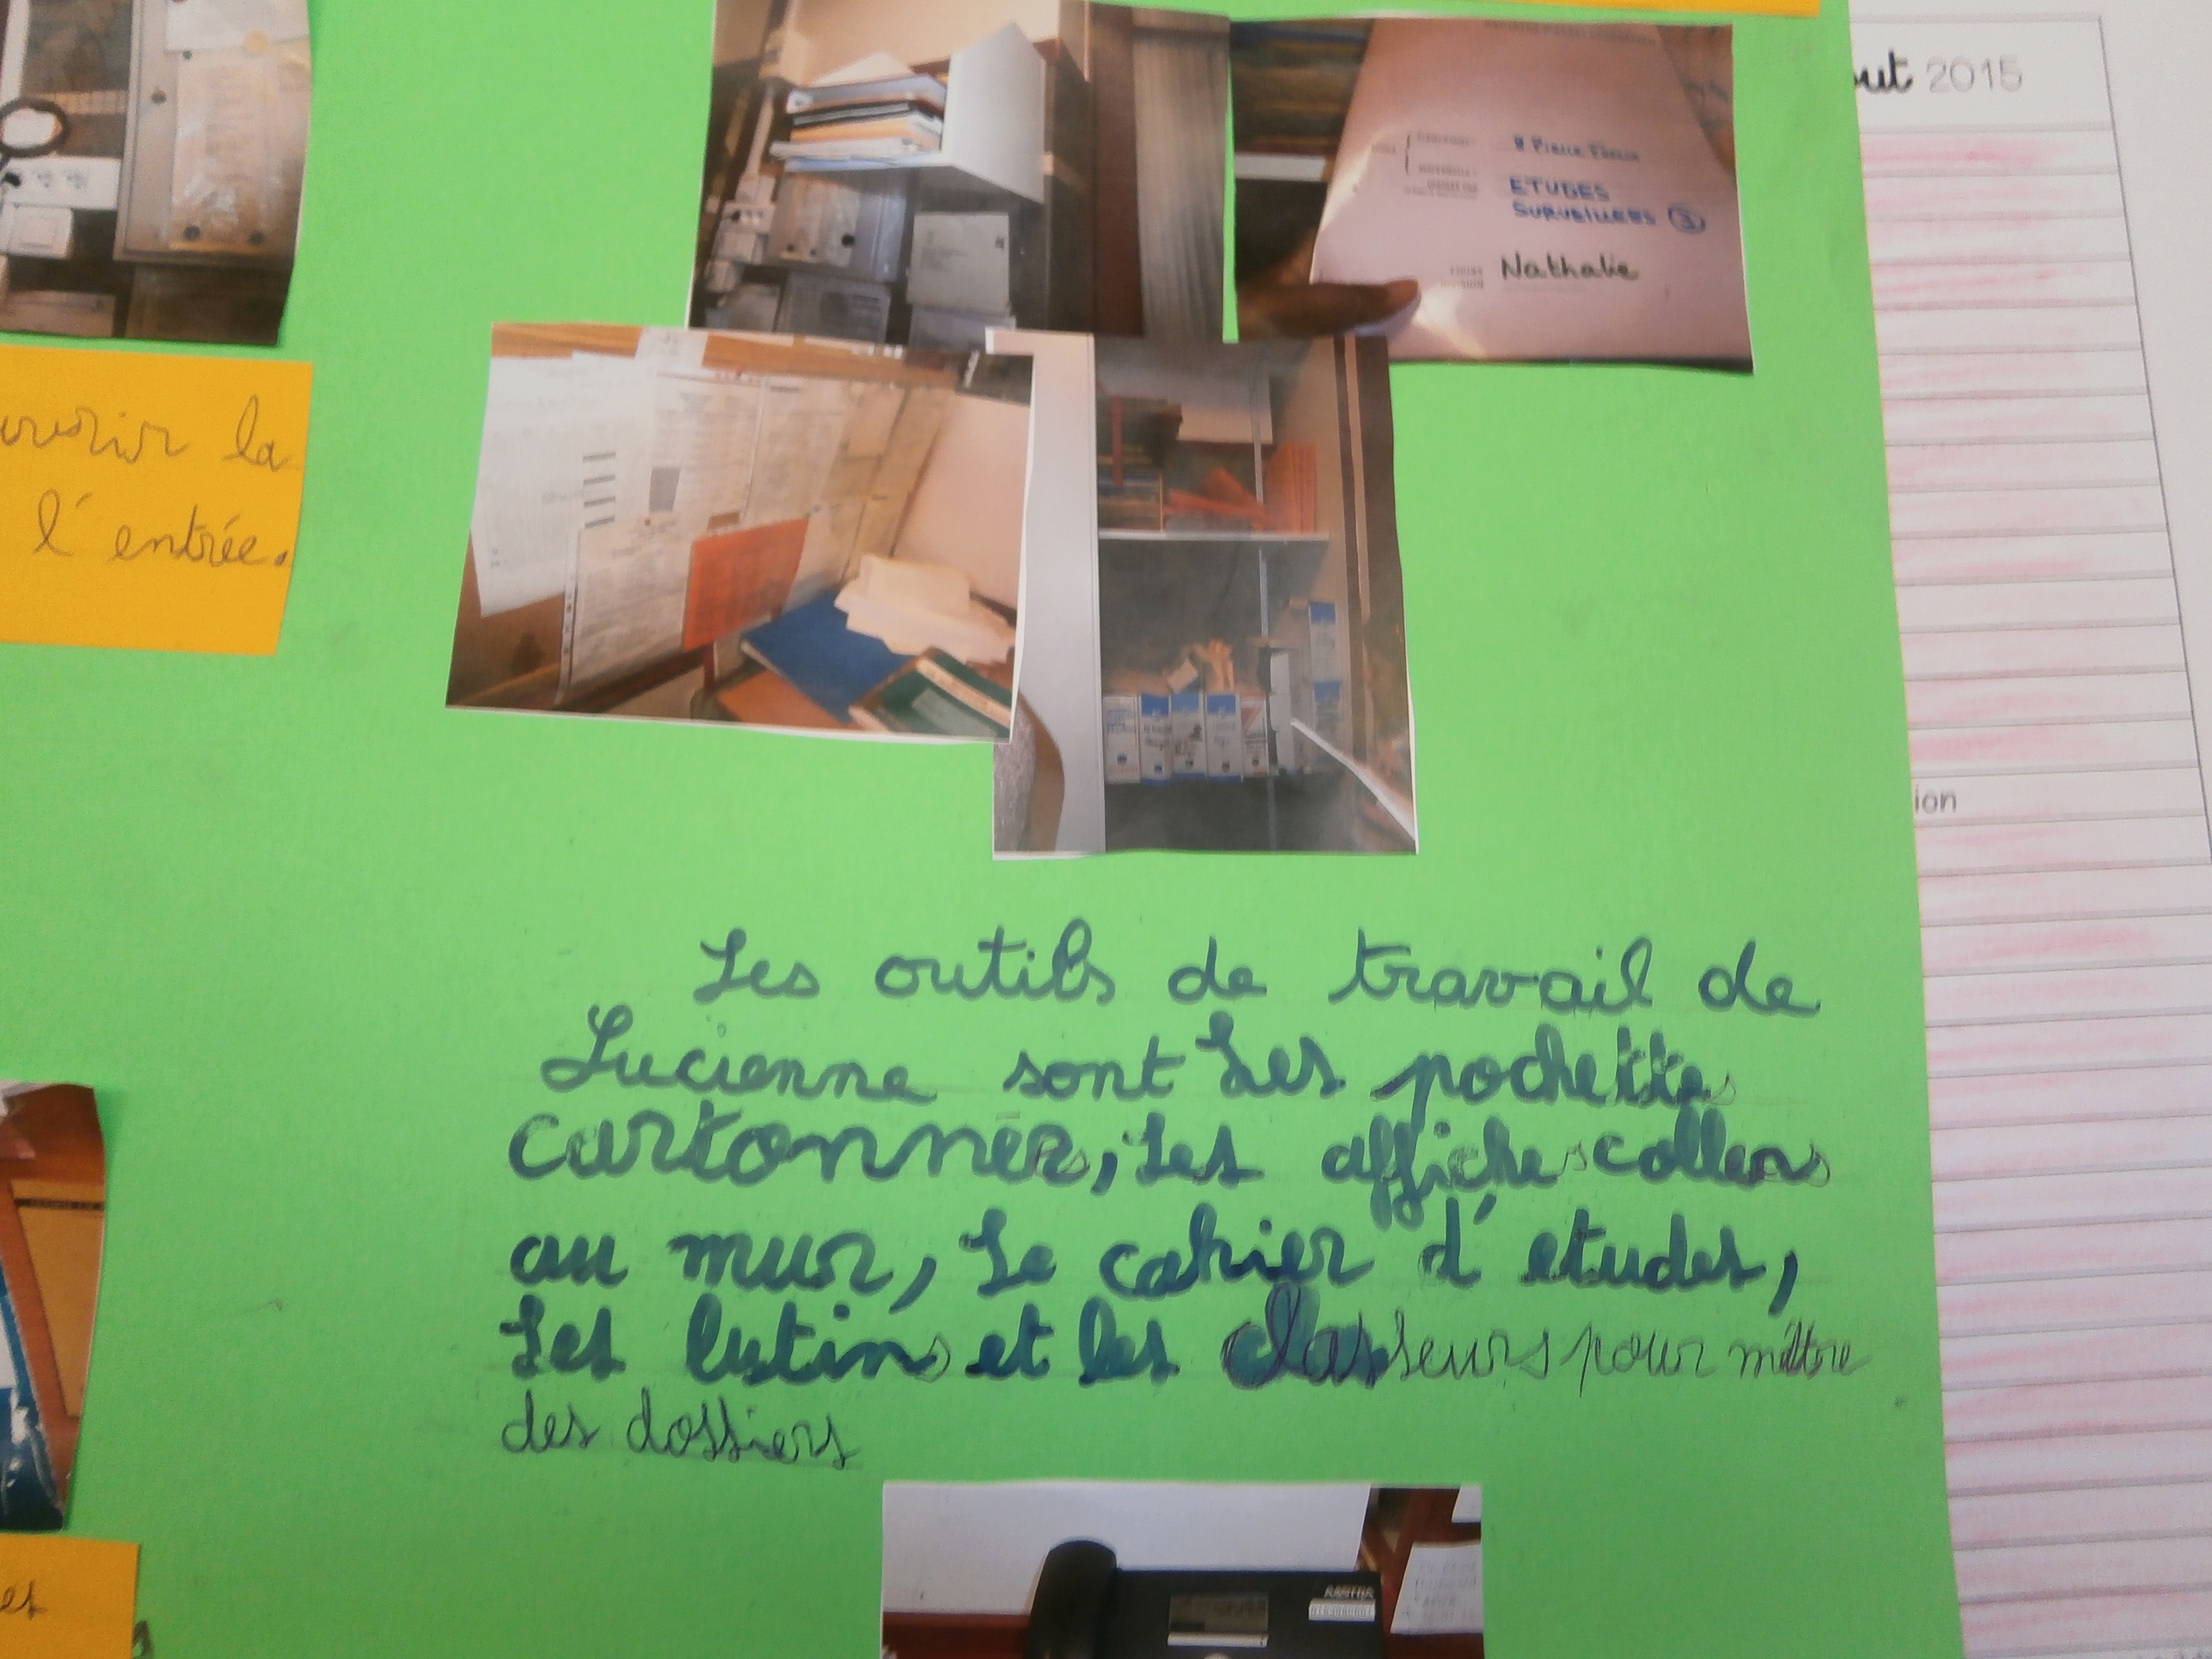 out 2015
ETUDES
SURVEILLEES 3
Nathalie
la
l'entrée.
ion
Les outils de travail de
Lucienne sont Les pochettes
cartonnées, Les affiches collers
au mur, Le cahier d'etudes,
Les lutins et les classeurs pour mettre
des dossiers
AASTRA
et